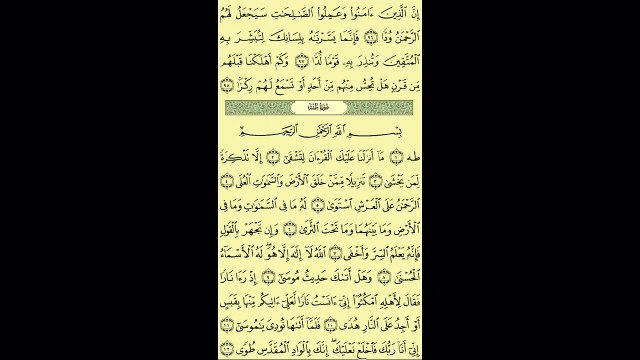 إِنَّ ٱلَّذِينَ ءَامَنُوا۟ وَعَمِلُوا۟ ٱلصَّـٰلِحَـٰتِ سَيَجْعَلُ لَهُمُ
ٱلرَّحْمَـٰنُ وُدًّا ٩٦ فَإِنَّمَا يَسَّرْنَـٰهُ بِلِسَانِكَ لِتُبَشِّرَ بِهِ
ٱلْمُتَّقِينَ وَتُنذِرَ بِهِۦ قَوْمًا لُّدًّا ٩٧ وَكَمْ أَهْلَكْنَا قَبْلَهُم
مِّن قَرْنٍ هَلْ تُحِسُّ مِنْهُم مِّنْ أَحَدٍ أَوْ تَسْمَعُ لَهُمْ رِكْزًۢا ٩٨
سُورَةُ طه
بِسْمِ ٱللَّهِ ٱلرَّحْمَـٰنِ ٱلرَّحِيمِ
طه ١ مَآ أَنزَلْنَا عَلَيْكَ ٱلْقُرْءَانَ لِتَشْقَىٰٓ ٢ إِلَّا تَذْكِرَةً
لِّمَن يَخْشَىٰ ٣ تَنزِيلًا مِّمَّنْ خَلَقَ ٱلْأَرْضَ وَٱلسَّمَـٰوَٰتِ ٱلْعُلَى ٤
ٱلرَّحْمَـٰنُ عَلَى ٱلْعَرْشِ ٱسْتَوَىٰ ٥ لَهُۥ مَا فِى ٱلسَّمَـٰوَٰتِ وَمَا فِى
ٱلْأَرْضِ وَمَا بَيْنَهُمَا وَمَا تَحْتَ ٱلثَّرَىٰ ٦ وَإِن تَجْهَرْ بِٱلْقَوْلِ
فَإِنَّهُۥ يَعْلَمُ ٱلسِّرَّ وَأَخْفَى ٧ ٱللَّهُ لَآ إِلَـٰهَ إِلَّا هُوَ ۖ لَهُ ٱلْأَسْمَآءُ
ٱلْحُسْنَىٰ ٨ وَهَلْ أَتَىٰكَ حَدِيثُ مُوسَىٰٓ ٩ إِذْ رَءَا نَارًا
فَقَالَ لِأَهْلِهِ ٱمْكُثُوٓا۟ إِنِّىٓ ءَانَسْتُ نَارًا لَّعَلِّىٓ ءَاتِيكُم مِّنْهَا بِقَبَسٍ
أَوْ أَجِدُ عَلَى ٱلنَّارِ هُدًى ١٠ فَلَمَّآ أَتَىٰهَا نُودِىَ يَـٰمُوسَىٰٓ ١١
إِنِّىٓ أَنَا۠ رَبُّكَ فَٱخْلَعْ نَعْلَيْكَ ۖ إِنَّكَ بِٱلْوَادِ ٱلْمُقَدَّسِ طُوًى ١٢